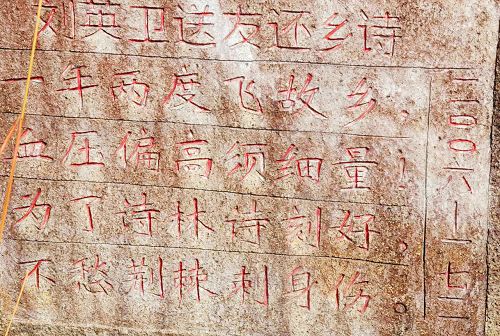 刘英卫送友还乡诗
一年两度飞故乡，
血压偏高须细量！
为了诗林诗刻好，
不愁荆棘刺身伤。
二00六一七一